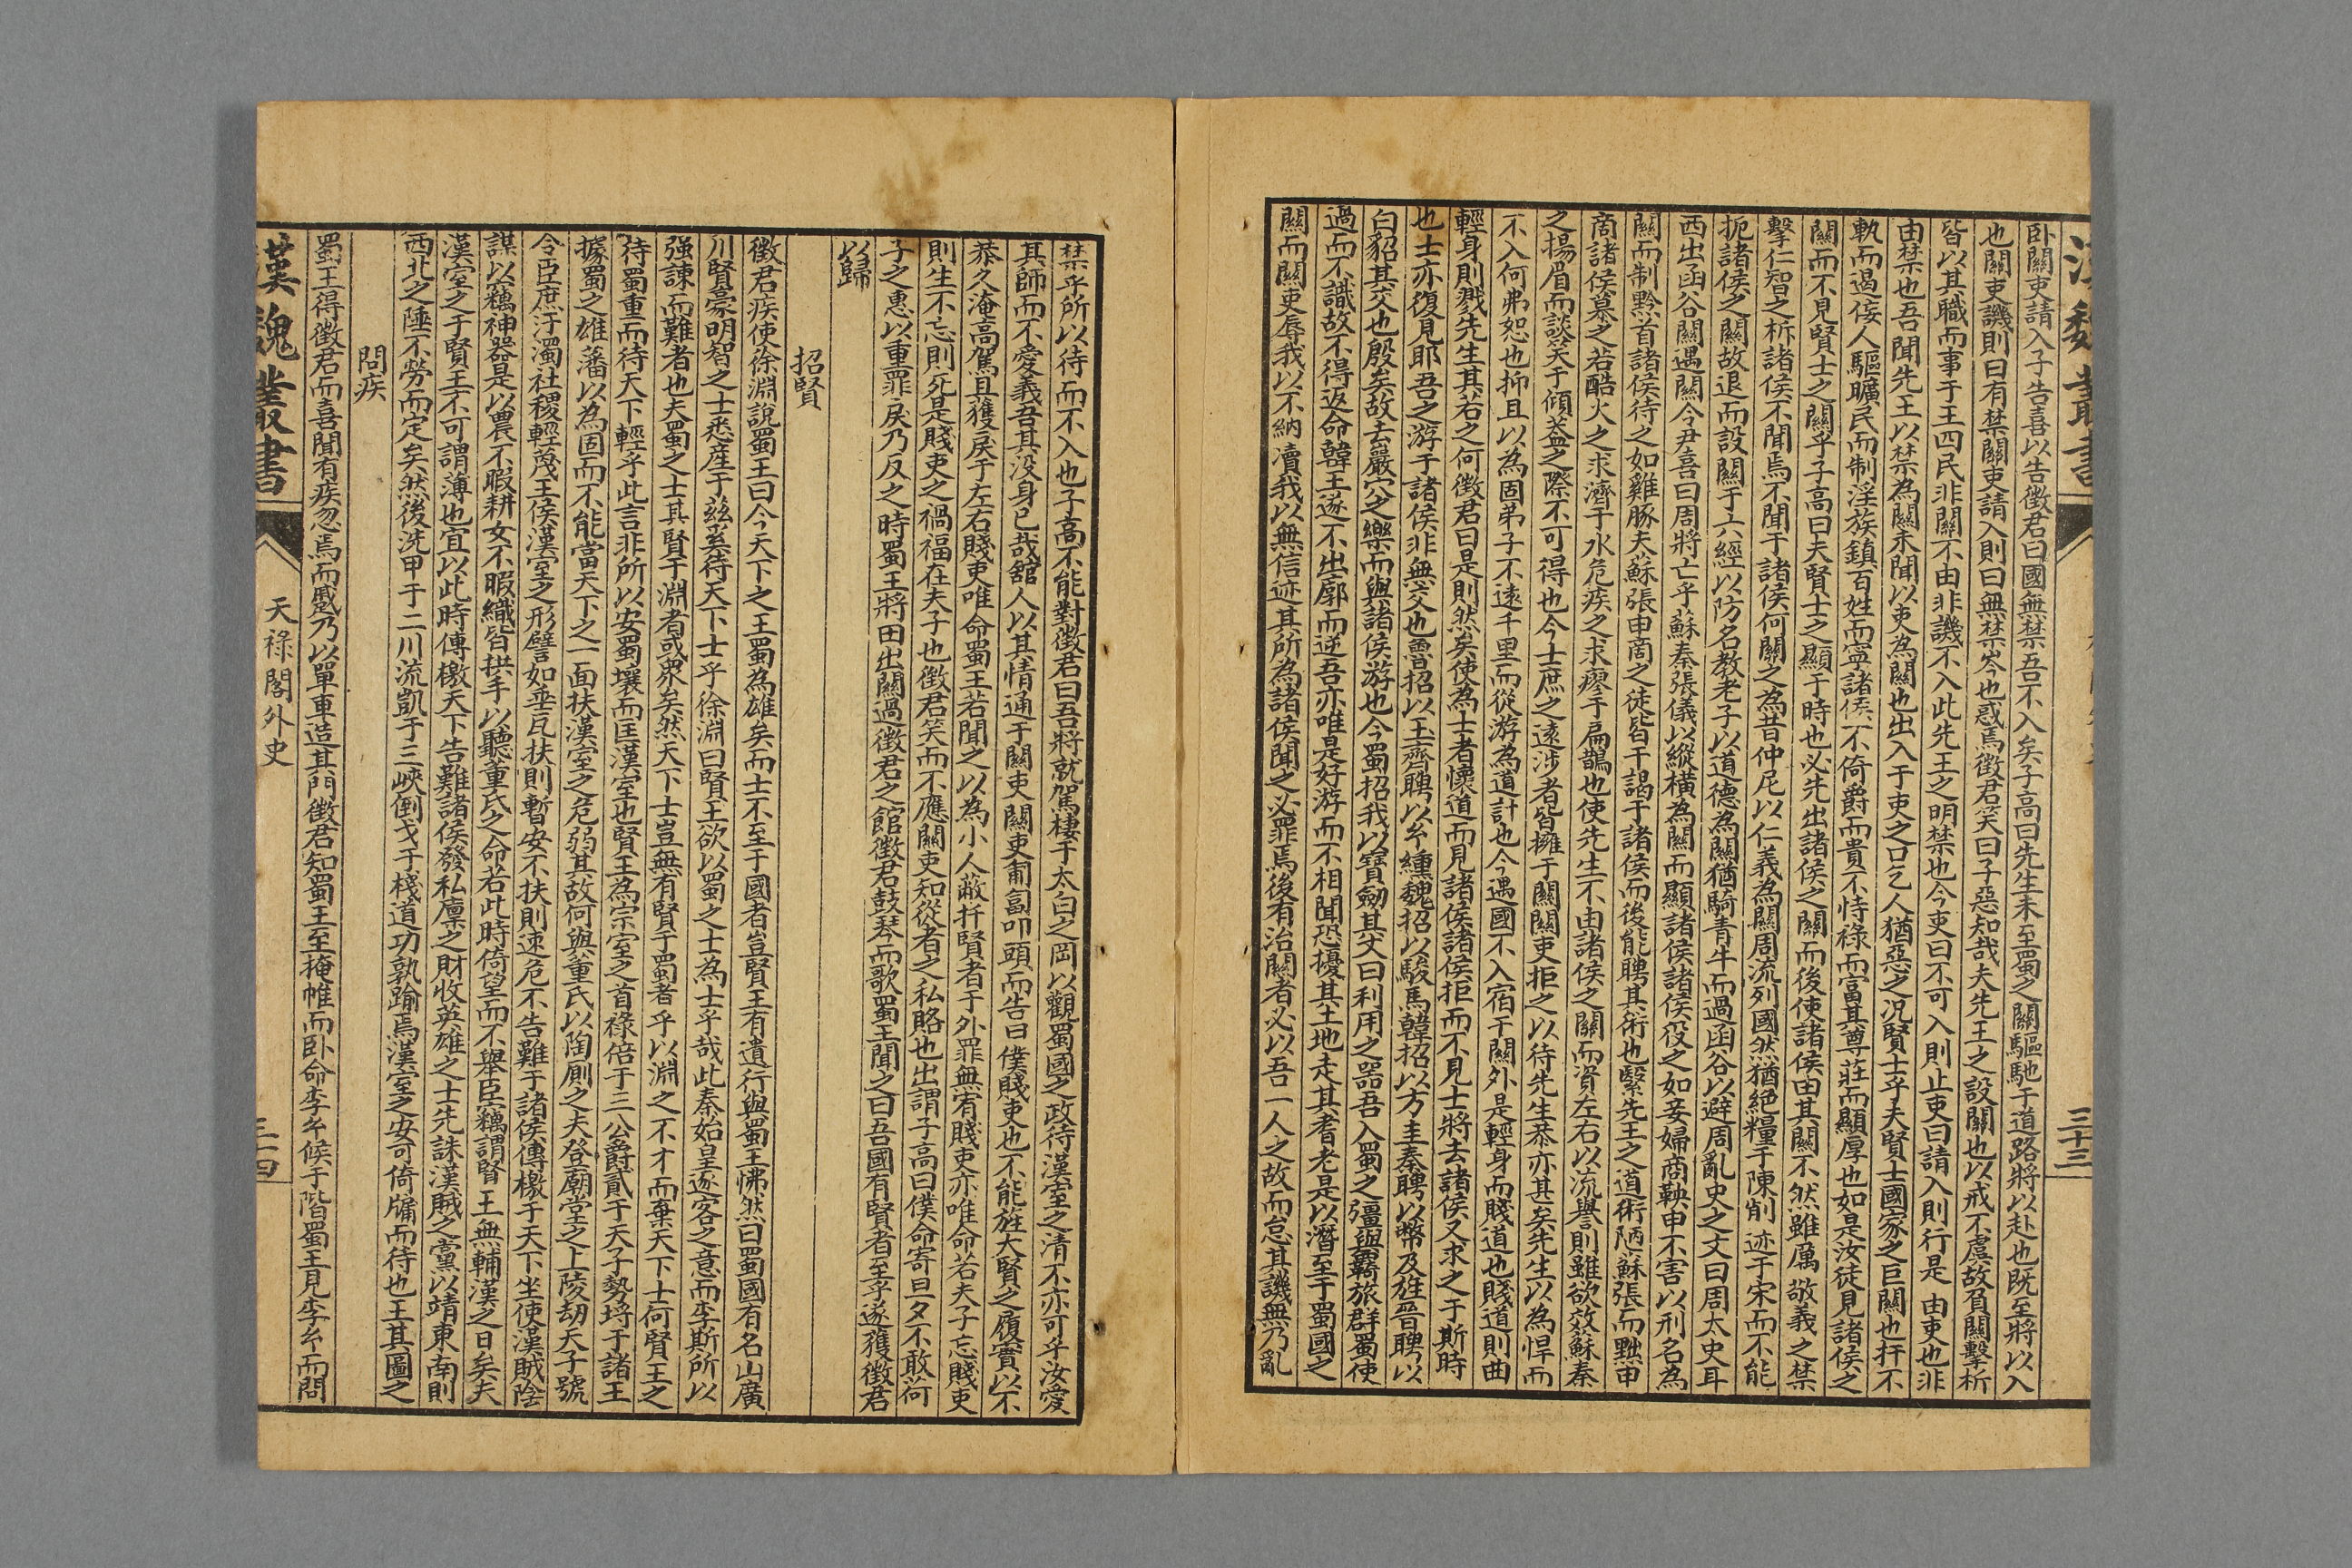 卧關吏請入子告喜以告徵君曰國無禁吾不入矣子高曰先生未至蜀之關驅馳于道路將以赴也既至將以入
也關吏譏則曰有禁關吏請入則曰無禁岑也惑焉徵君笑曰子惡知哉夫先王之設關也以戒不虞故負關擊柝
皆以其職而事于王四民非關不由非譏不入此先王之明禁也今吏曰不可入則止吏曰請入則行是由吏也非
由禁也吾聞先王以禁為關未聞以吏為關也出入于吏之口乞人猶惡之况賢士乎夫賢士國家之巨關也扞不
軌而遏侫人驅曠民而制淫族鎮百姓而寧諸侯不倚爵而貴不恃祿而富其尊莊而顯厚也如是汝徒見諸侯之
關而不見賢士之關乎子高曰夫賢士之顯于時也必先出諸侯之關而後使諸侯由其關不然雖厲敬義之禁
擊仁智之柝諸侯不聞焉不聞于諸侯何關之為昔仲尼以仁義為關周流列國然猶絕糧于陳削迹于宋而不能
扼諸侯之關故退而設關于六經以防名教老子以道德為關猶騎青牛而過函谷以避周亂史之文曰周太史耳
西出函谷關遇關令尹喜曰周將亡乎蘇秦張儀以縱橫為關而顯諸侯諸侯役之如妾婦商鞅申不害以刑名為
關而制黔首諸侯待之如雞豚夫蘇張申商之徒皆干謁于諸侯而後能聘其術也緊先王之道術陋蘇張而黜申
商諸侯慕之若酷火之求濟于水危疾之求瘳于扁鵲也使先生不由諸侯之關而資左右以流譽則雖欲效蘇秦
之揚眉而談笑于傾蓋之際不可得也今士庶之遠涉者皆擁于關關吏拒之以待先生恭亦甚矣先生以為悍而
不入何弗恕也抑且以為固弟子不遠千里而從游為道計也今遇國不入宿于關外是輕身而賤道也賤道則曲
輕身則戮先生其若之何徵君曰是則然矣使為士者懷道而見諸侯諸侯拒而不見士將去諸侯又求之于斯時
也士亦復見耶吾之游于諸侯非無交也魯招以玉齊聘以糸纁魏招以駿馬韓招以方圭秦聘以幣及旌晉聘以
白貂其交也殷矣故去巖穴之樂而與諸侯游也今蜀招我以寶劒其文曰利用之器吾入蜀之彊與羈旅群蜀使
過而不識故不得返命韓王遂不出廓而逆吾亦唯是好游而不相聞恐擾其土地走其耆老是以潛至于蜀國之
關而關吏辱我以不納瀆我以無信迹其所為諸侯聞之必罪焉後有治關者必以吾一人之故而怠其譏無乃亂
三十三
禁乎所以待而不入也子高不能對徵君曰吾將就駕棲于太白之岡以觀蜀國之政待漢室之清不亦可乎汝愛
其師而不愛義吾其没身已哉舘人以其情通于關吏關吏匍匐叩頭而告曰僕賤吏也不能旌大賢之履實以不
恭久淹高駕且獲戾于左右賤吏唯命蜀王若聞之以為小人蔽扞賢者于外罪無宥賤吏亦唯命若夫子忘賤吏
則生不忘則死是賤吏之禍福在夫子也徵君笑而不應關吏知從者之私賂也出謂子高曰僕命寄旦夕不敢荷
子之惠以重罪戾乃反之時蜀王將田出關過徵君之館徵君鼓琴而歌蜀王聞之曰吾國有賢者至乎遂獲徵君
以歸
招賢
徵君疾使徐淵說蜀王曰今天下之王蜀為雄矣而士不至于國者豈賢王有遺行與蜀王怫然曰蜀國有名山廣
川賢豪明智之士悉産于茲奚待天下士乎徐淵曰賢王欲以蜀之士為士乎哉此秦始皇逐客之意而李斯所以
强諫而難者也夫蜀之士其賢于淵者或衆矣然天下士豈無有賢于蜀者乎以淵之不才而棄天下士何賢王之
待蜀重而待天下輕乎此言非所以安蜀壤而匡漢室也賢王為宗室之首祿倍于三公爵貳于天子勢埒于諸王
據蜀之雄藩以為固而不能當天下之一面扶漢室之危弱其故何與董氏以陶厠之夫登廟堂之上陵劫天子號
令臣庶汙濁社稷輕蔑王侯漢室之形譬如垂瓦扶則暫安不扶則速危不告難于諸侯傳檄于天下坐使漢賊陰
謀以竊神器是以農不暇耕女不暇織皆拱手以聽董氏之命若此時倚望而不舉臣竊謂賢王無輔漢之日矣夫
漢室之于賢王不可謂薄也宜以此時傳檄天下告難諸侯發私廩之財收英雄之士先誅漢賊之黨以靖東南則
西北之陲不勞而定矣然後洗甲于二川流凱于三峽倒戈于棧道功孰踰焉漢室之安可倚牖而待也王其圖之
問疾
蜀王得徵君而喜聞有疾忽焉而蹙乃以單車造其門徵君知蜀王至掩帷而卧命李糸候于階蜀王見李糸而問
漢魏叢書
天祿閣外史
三十四